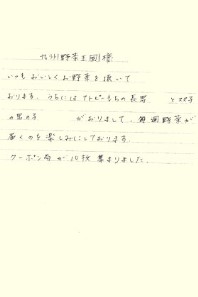 九州野菜王国様
いつもおいしくお野菜を頂いて
おります。うちにはアトピーもちの長男 と
の男の子 がおりまして、毎週野菜が
届くのを楽しみにしております。
クーポン券が10枚集まりました。